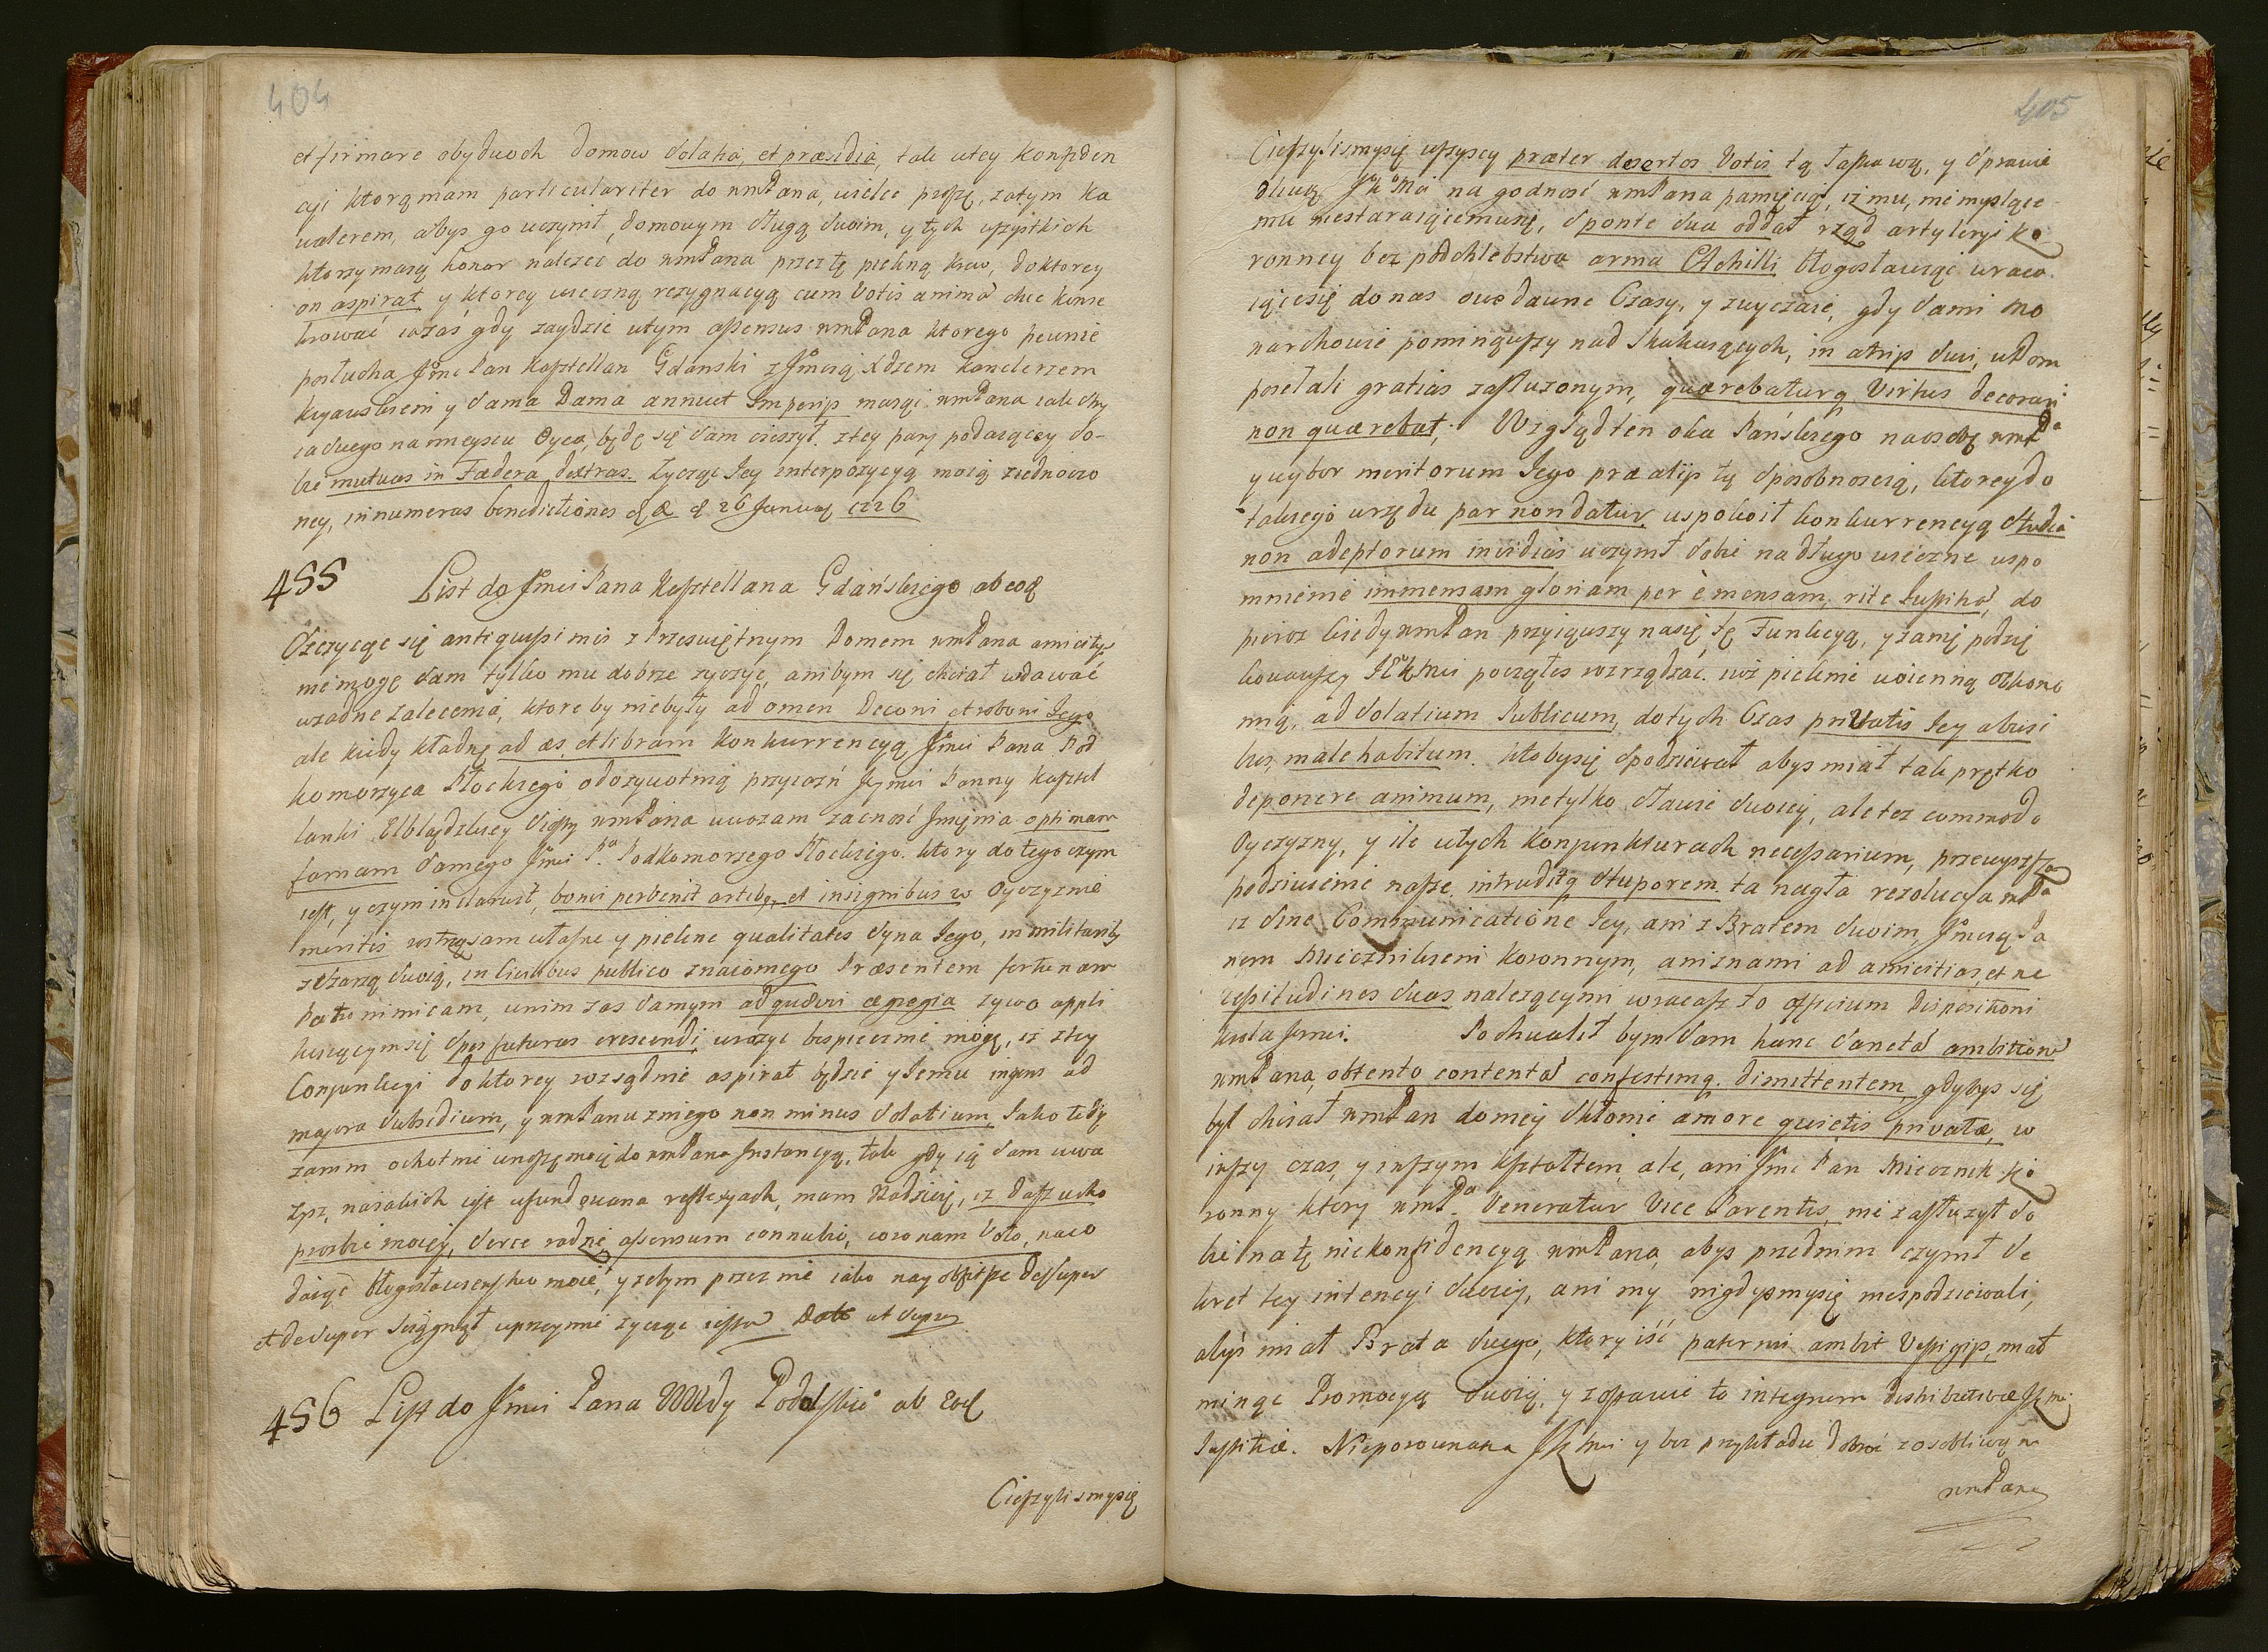 404
et firmare obydwoch Domow solatia, et præsidia, tak w tey konfiden
cyi ktorą mam particulariter do wmPana, wielce proszę, za tym ka
walerem, abys go uczynił, domowym sługą swoim, y tych wszystkich
ktorzy maią honor nalezec do wmPana przez tę piękną krew, do ktorey
on aspirat y ktorey wieczną rezygnacyą cum Votis animá chce konse
krować iezas gdy zaydzie w tym assensus wmPana ktorego pewnie
posłucha Jmc Pan Kasztellan Gdanski z Jmcią Xdzem Kanclerzem
Kuiawskiem y sama Dama annuet Imperiis maiąc wmPana iak stry
ia swego na mieyscu Oyca, będę się sam cieszył z tey pary podaiącey so-
bie mutuas in Fædera dextras. Zycząc Jey interpozycyą moią ziednoczo
ney, innumeras benedictiones & & 26 January 1726
455 List do Jmci Pana Kasztellana Gdańskiego ab eod
Szczycąc się antiquissimis z Przeswiętnym Domem wmPana amicitys
nie mogę sam tylko mu dobrze zyczyć, anibym się chciał wdawać
w zadne zalecenia, ktore by niebyły ad omen Deconi et roboni Jego
ale kiedy kładnę ad æs, et libram konkurrencyą Jmci Pana Pod
komorzyca Płockiego o dozywotnią przyiazń Jeymci Panny Kasztel
lanki Elblądzkiey Siostry wmPana uwazam zacność Imienia optimam
famam samego Jmci Pa Podkomorzego Płockiego. ktory do tego czym
iest, y czym inclaruit, bonis pervenit artibq, et insignibus w Oyczyznie
meritis ... własne y piękne qualitates syna Jego, in militarib
z Szarzą swoią, in Civilibus publico znaiomego Præsentem fortunam
Patrimonicam, w nim zas samym ad quævis egregia zywo appli
kuiącym się spes futuras crescendi wrozyc bespiecznie mogę, iz z tey
Conjunkcyi do ktorey rozsądnie aspirat będzie y Jemu ingens ad
majora subsidium, y wmPanu z niego non minus solatium, Jako tedy
zanim ochotnie wnoszę moię do wmPana Instancyą, tak gdy ią sam uwa
zysz, na iakich iest ufundowana reflexyach, mam Nadzieię, iz dasz ucho
prozbie moiey, serce radzie, assensum connubio, coronam Voto, na co
daiąc błogosławienstwo moie, y zebym przez nie iako nay obfitsze desuper
et desuper sciągnął uprzeymie zycząc iestem Date ut supra
456 List do Jmci Pana Wdy Podolskie ab Eod
Cieszylismysię

405
Cieszylismysię wszyscy præter desertos Votis tą łaskawą, y sprawie
dliwą JKMci na godność wmPana pamięcią, iz mu, niemyslące
mu niestaraiącemusię, sponte sua oddał rząd artyleryi ko
ronney bez podchlebstwa arma Achilli błogosławiąc wraca
iącesię do nas owe dawne Czasy, y zwyczaie, gdy sami Mo
narchowie pominąwszy nad skakuiących, in atriis suis, w Dom
posełali gratias zasłuzonym, quærebaturq Virtus decorari
non quærebat; Wzgląd ten oka Panskiego na osobę wmPa
y wybor meritorum Jego præ aliis tę sposobnoscią, ktorey do
takiego urzędu par non datur uspokoił konkurrencyą studia
non adeptorum invidiæ uczynił sobie na długo wieczne wspo
mnienie immensam gloriam per è mensam, rite Justitiá, do
pieroz kiedy wmPan przyiąwszy nasię tę Funkcyą, y zanię podzię
kowawszy JKMci począłes rozrządzać. iuż pięknie woienną Ekono
mią, ad solatium Publicum, dotych Czas privatis Jey abusi
bus, male habitum. kto by się spodziewał abys miał tak prętko
deponere animum, nietylko sławie swoiey, ale tez commodo
Oyczyzny, y ile w tych konjunkturach necessarium, przewyszsza
podziwienie nasze intruditq stuporem ta nagła rezolucya wmPa
iz sine Communicatione Jey, ani z Bratem swoim, Jmcią Pa
nem Miecznikiem Koronnym, ani z nami ad amicitias, et ne
cessitudines suas nalezącymi wracasz to officium dispositioni
Krola Jmci. Pochwalił bym sam hanc sanctá ambitioné
wmPana, obtento contentá confestimq. dimittentem, gdybys się
był chciał wmPan do niey skłonic amore quietis privatæ, w
inszy czas, y inszym kształtem, ale, ani Jmc Pan Miecznik Ko
ronny ktory wmPa Veneratur Vice Parentis, nie zasłuzył so
bie na tę niekonfidencyą wmPana, abys przednim czynił se
kret tey intencyi swoiey, ani my nigdysmysię niespodziewali,
abyś miał Brata swego, ktory iść paternis ambit Vestigiis, mał
minąc Promocyą swoią, y zostawić to integrum distributivæ JKMci
Justitiæ. Nieporownana JKMci y bez przykładu dobroć z osobliwą na
wmPana